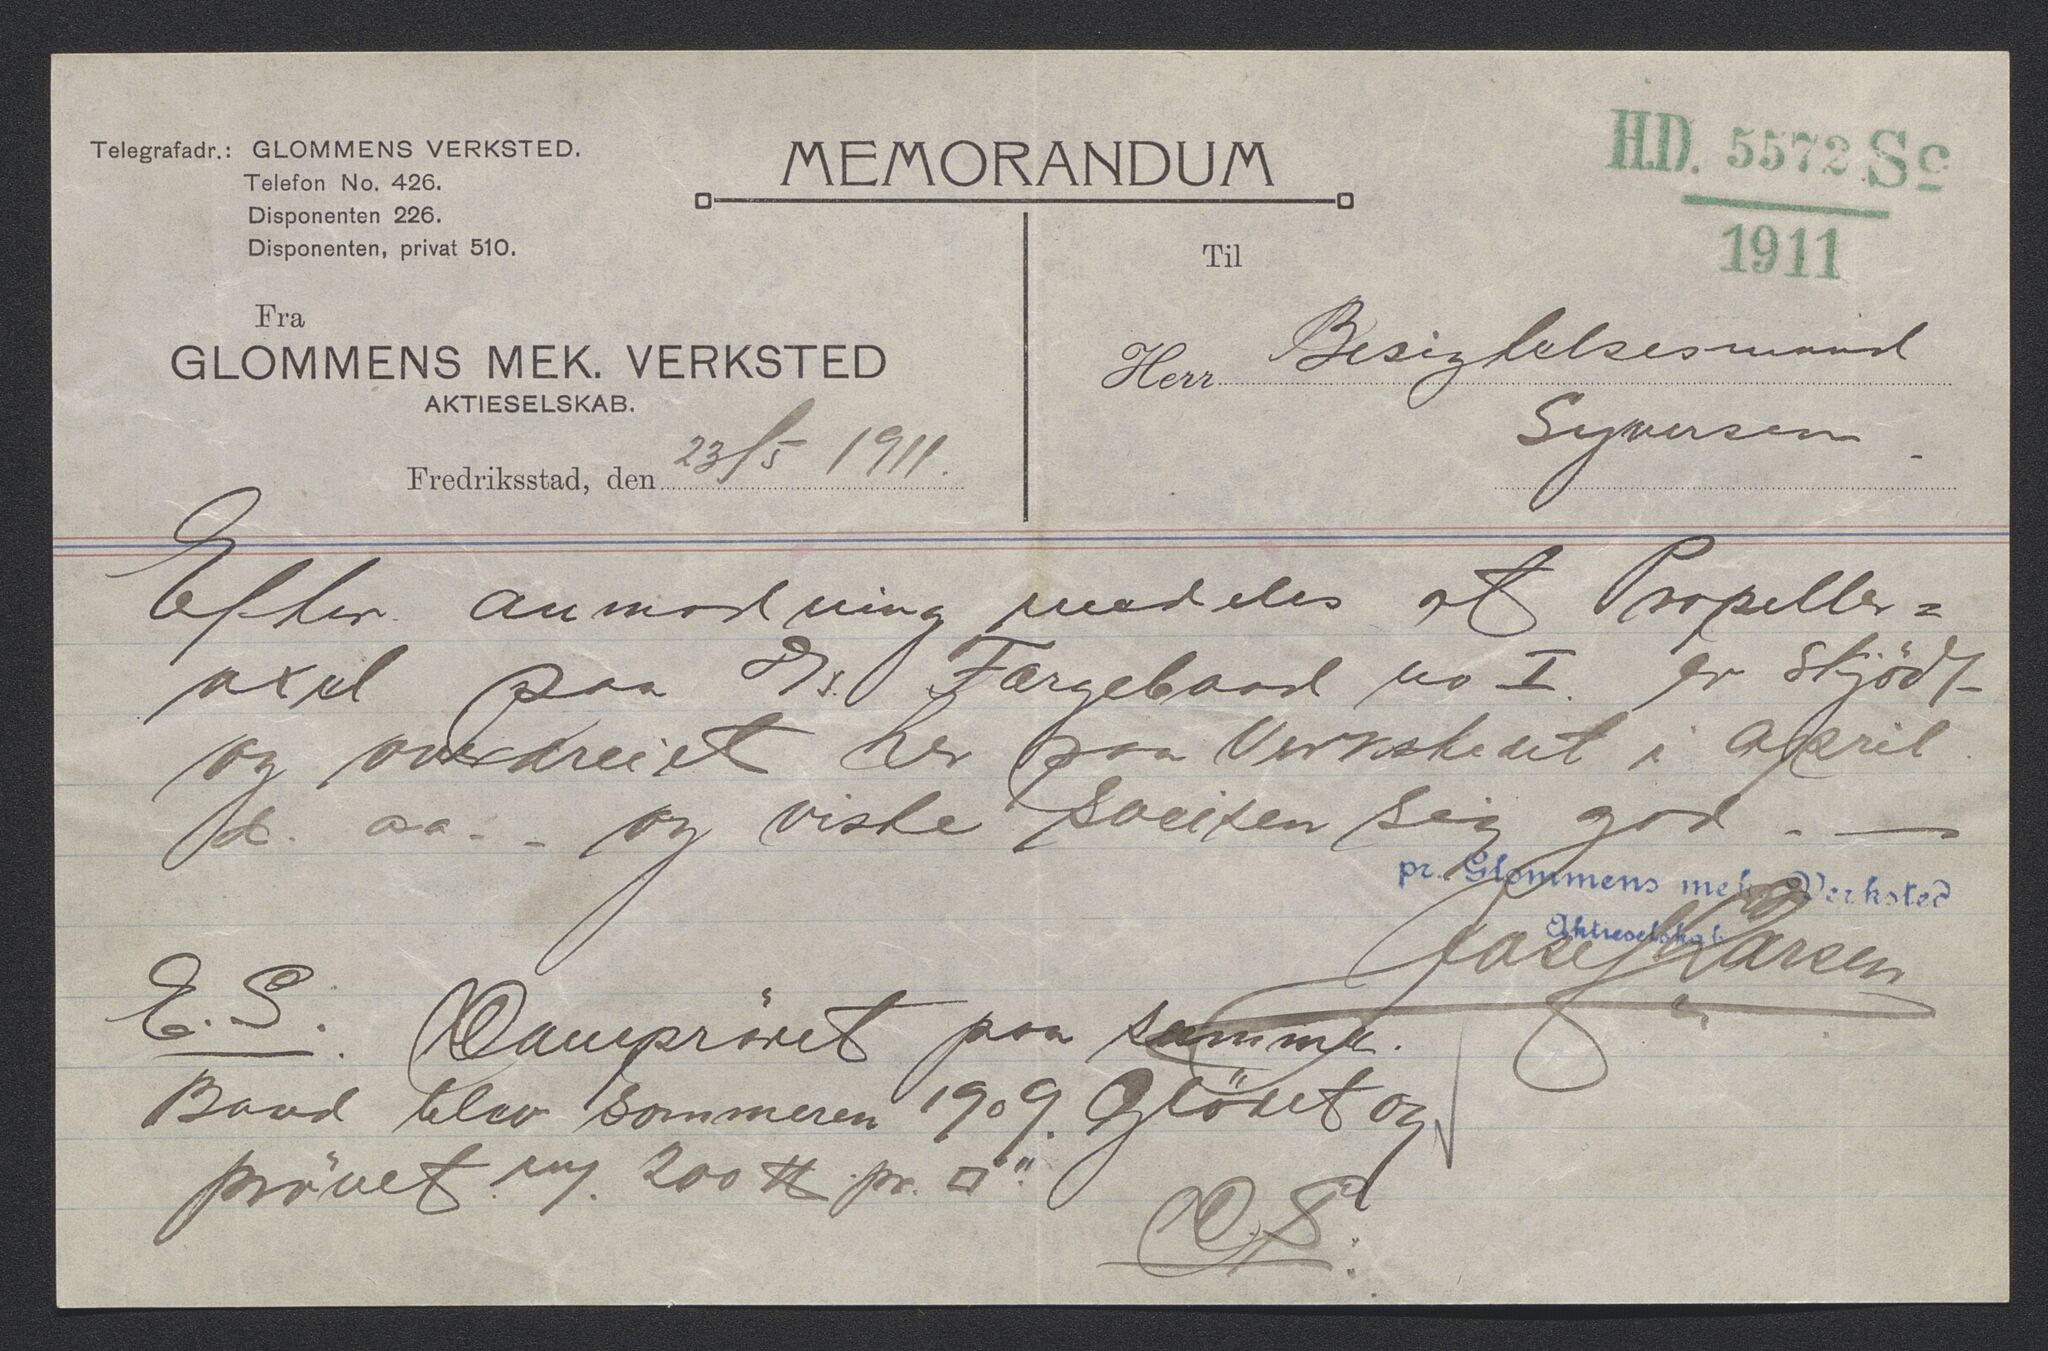 Telegrafadr.: GLOMMENS VERKSTED.
Telefon No. 426.
Disponenten 226.
Disponenten, privat 510.
MEMORANDUM
H.D. 5572 Sc
1911
Til
Fra
GLOMMENS MEK. VERKSTED
AKTIESELSKAB.
Fredriksstad, den 23/5 1911.
Herr Besigtelsesmand
Syversen
Efter anmodning meddeles at Propeller=
axel paa D/s. Færgebaad no I. er Skjödt
og overdreiet her paa Verkstedet i April
d. aa. - og viste sveisen sig god. -
pr. Glommens mek. Verksted
Aktieselskab
Josef Larsen
E. S. Dampröret paa samme.
Baad blev sommeren 1909. Glödet og
prövet. 200 ℔ pr. □".